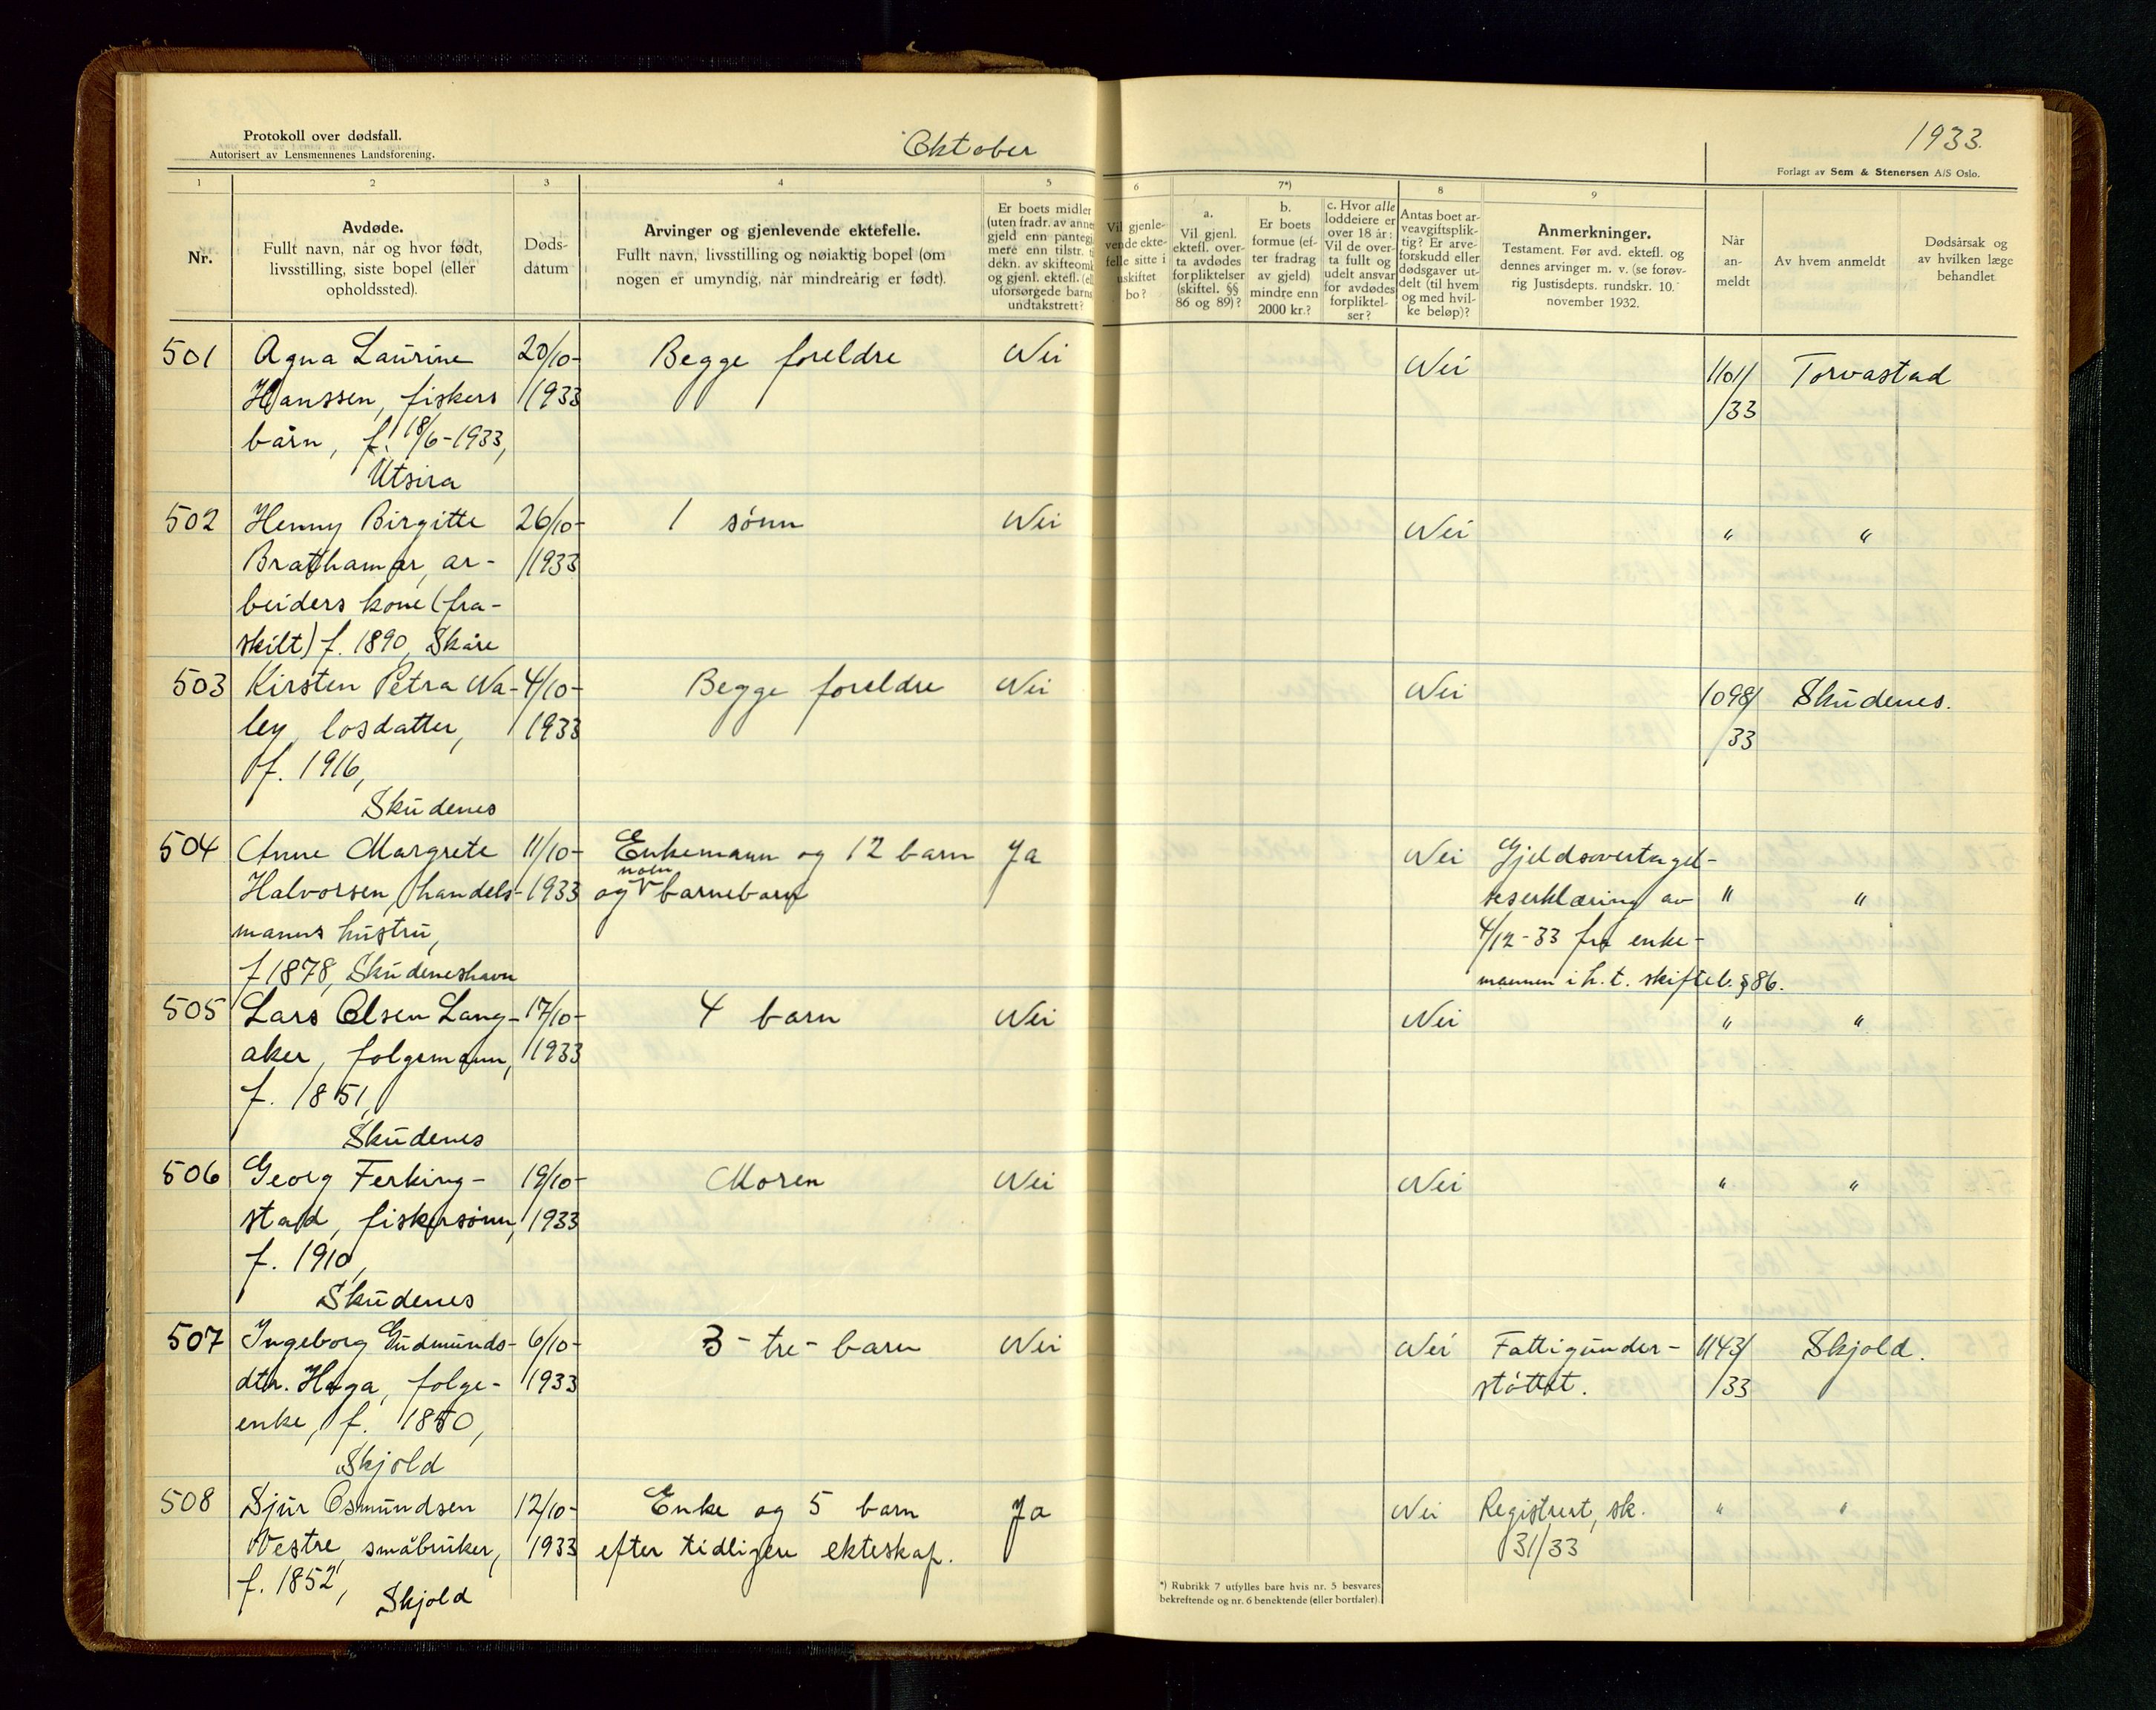 Protokoll over dødsfall.
Autorisert av Lensmennenes Landsforening.
Oktober
1933.
Forlagt av Sem & Stenersen A/S Oslo.
1
2
3
4
5
6
7*)
8
9
Nr.
Avdøde.
Fullt navn, når og hvor født,
livsstilling, siste bopel (eller
opholdssted).
Døds-
datum
Arvinger og gjenlevende ektefelle.
Fullt navn, livsstilling og nøiaktig bopel (om
nogen er umyndig, når mindreårig er født).
Er boets midler
(uten fradr. av annen
gjeld enn pantegj.
mere enn tilstr. t.
dekn. av skifteomk.
og gjenl. ektef. (el.
uforsørgede barns
undtakstrett?
Vil gjenle-
vende ekte-
felle sitte i
uskiftet
bo?
a.
Vil gjenl.
ektefl. over-
ta avdødes
forpliktelser
(skiftel. §§
86 og 89)?
b.
Er boets
formue (ef-
ter fradrag
av gjeld)
mindre enn
2000 kr.?
c. Hvor alle
loddeiere er
over 18 år:
Vil de over-
ta fullt og
udelt ansvar
for avdødes
forpliktel-
ser?
Antas boet ar-
veavgiftsplik-
tig? Er arve-
forskudd eller
dødsgaver ut-
delt (til hvem
og med hvil-
ke beløp)?
Anmerkninger.
Testament. Før avd. ektefl. og
dennes arvinger m. v. (se forøv-
rig Justisdepts. rundskr. 10.
november 1932.
Når
an-
meldt
Av hvem anmeldt
Dødsårsak og
av hvilken læge
behandlet.
501 Agna Laurine 20/10- Begge foreldre Nei Nei 1101/ Torvastad
Hanssen, fiskers 1933 /33
barn, f. 18/6-1933,
Utsira
502 Henny Birgitte 26/10- 1 sønn Nei Nei " "
Brathammer, ar- 1933
beiders kone (fra-
skilt) f. 1890, Skåre
503 Kirsten Petra Na- 4/10- Begge foreldre Nei Nei 1098/ Skudenes.
ley, losdatter, 1933 /33
f. 1916,
Skudenes
504 Anne Margrete 11/10- Enkemann og 12 barn Ja Nei Gjeldsovertagel-
Halvorsen, handels- 1933 og noen barnebarn seserklæring av " "
manns hustru, 4/12-33 fra enke-
f 1878, Skudeneshavn mannen i h. t. skiftel. § 86.
505 Lars Olsen Lang- 17/10- 4 barn Nei Nei " "
aker, folgemann, 1933
f. 1851,
Skudenes
506 Georg Ferking- 19/10- Moren Nei Nei " "
stad, fiskersønn, 1933
f. 1910,
Skudenes
507 Ingeborg Gudmunds- 6/10- 3 - tre - barn Nei Nei Fattigunder- 1143/ Skjold.
dtr. Haga, folge- 1933 støttet. /33
enke, f. 1850,
Skjold
508 Sjur Osmundsen 12/10- Enke og 5 barn Ja Nei Registrert, sk. " "
Vestre, småbruker, 1933 efter tidligere ekteskap. 31/33
f. 1852,
Skjold
*) Rubrikk 7 utfylles bare hvis nr. 5 besvares
bekreftende og nr. 6 benektende (eller bortfaler).